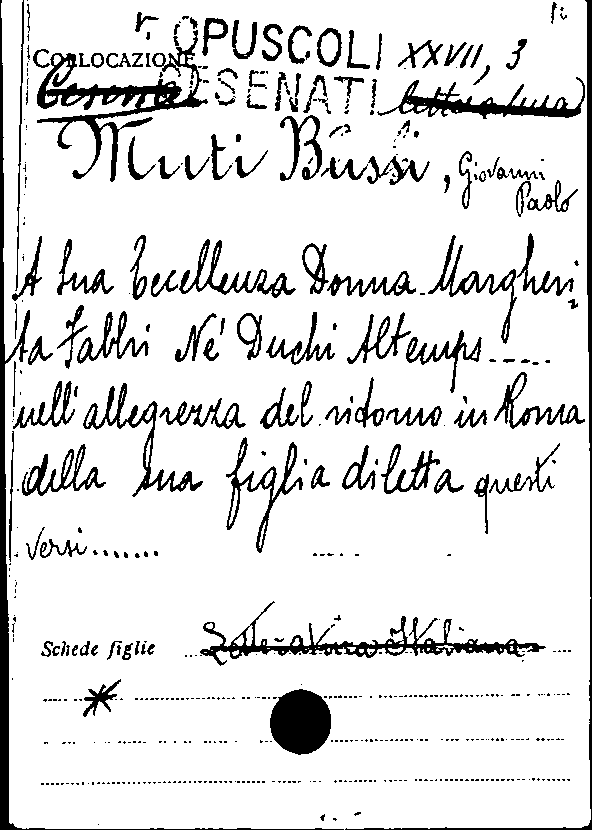 r. OPUSCOLI XXVII, 3
COLLOCAZIONE
Cesena CESENATI letteratura
Muti Bussi, Giovanni
Paolo
A Sua Eccellenza Donna Margheri
ta Fabbri Né Duchi Altemps.....
nell'allegrezza del ritorno in Roma
della sua figlia diletta questi
versi....... .... .
Schede figlie Letteratura Italiana